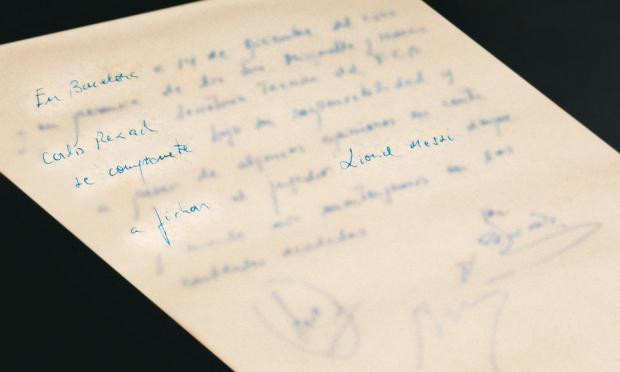 En Barcelona a 14 de diciembre del 2000
y en presencia de los Minguella y
Carlos Rexach del F.C.B
se compromete bajo su responsabilidad y
a pesar de algunas opiniones en contra
a fichar al jugador Lionel Messi
y cuando nos mantengamos en las
cantidades acordadas